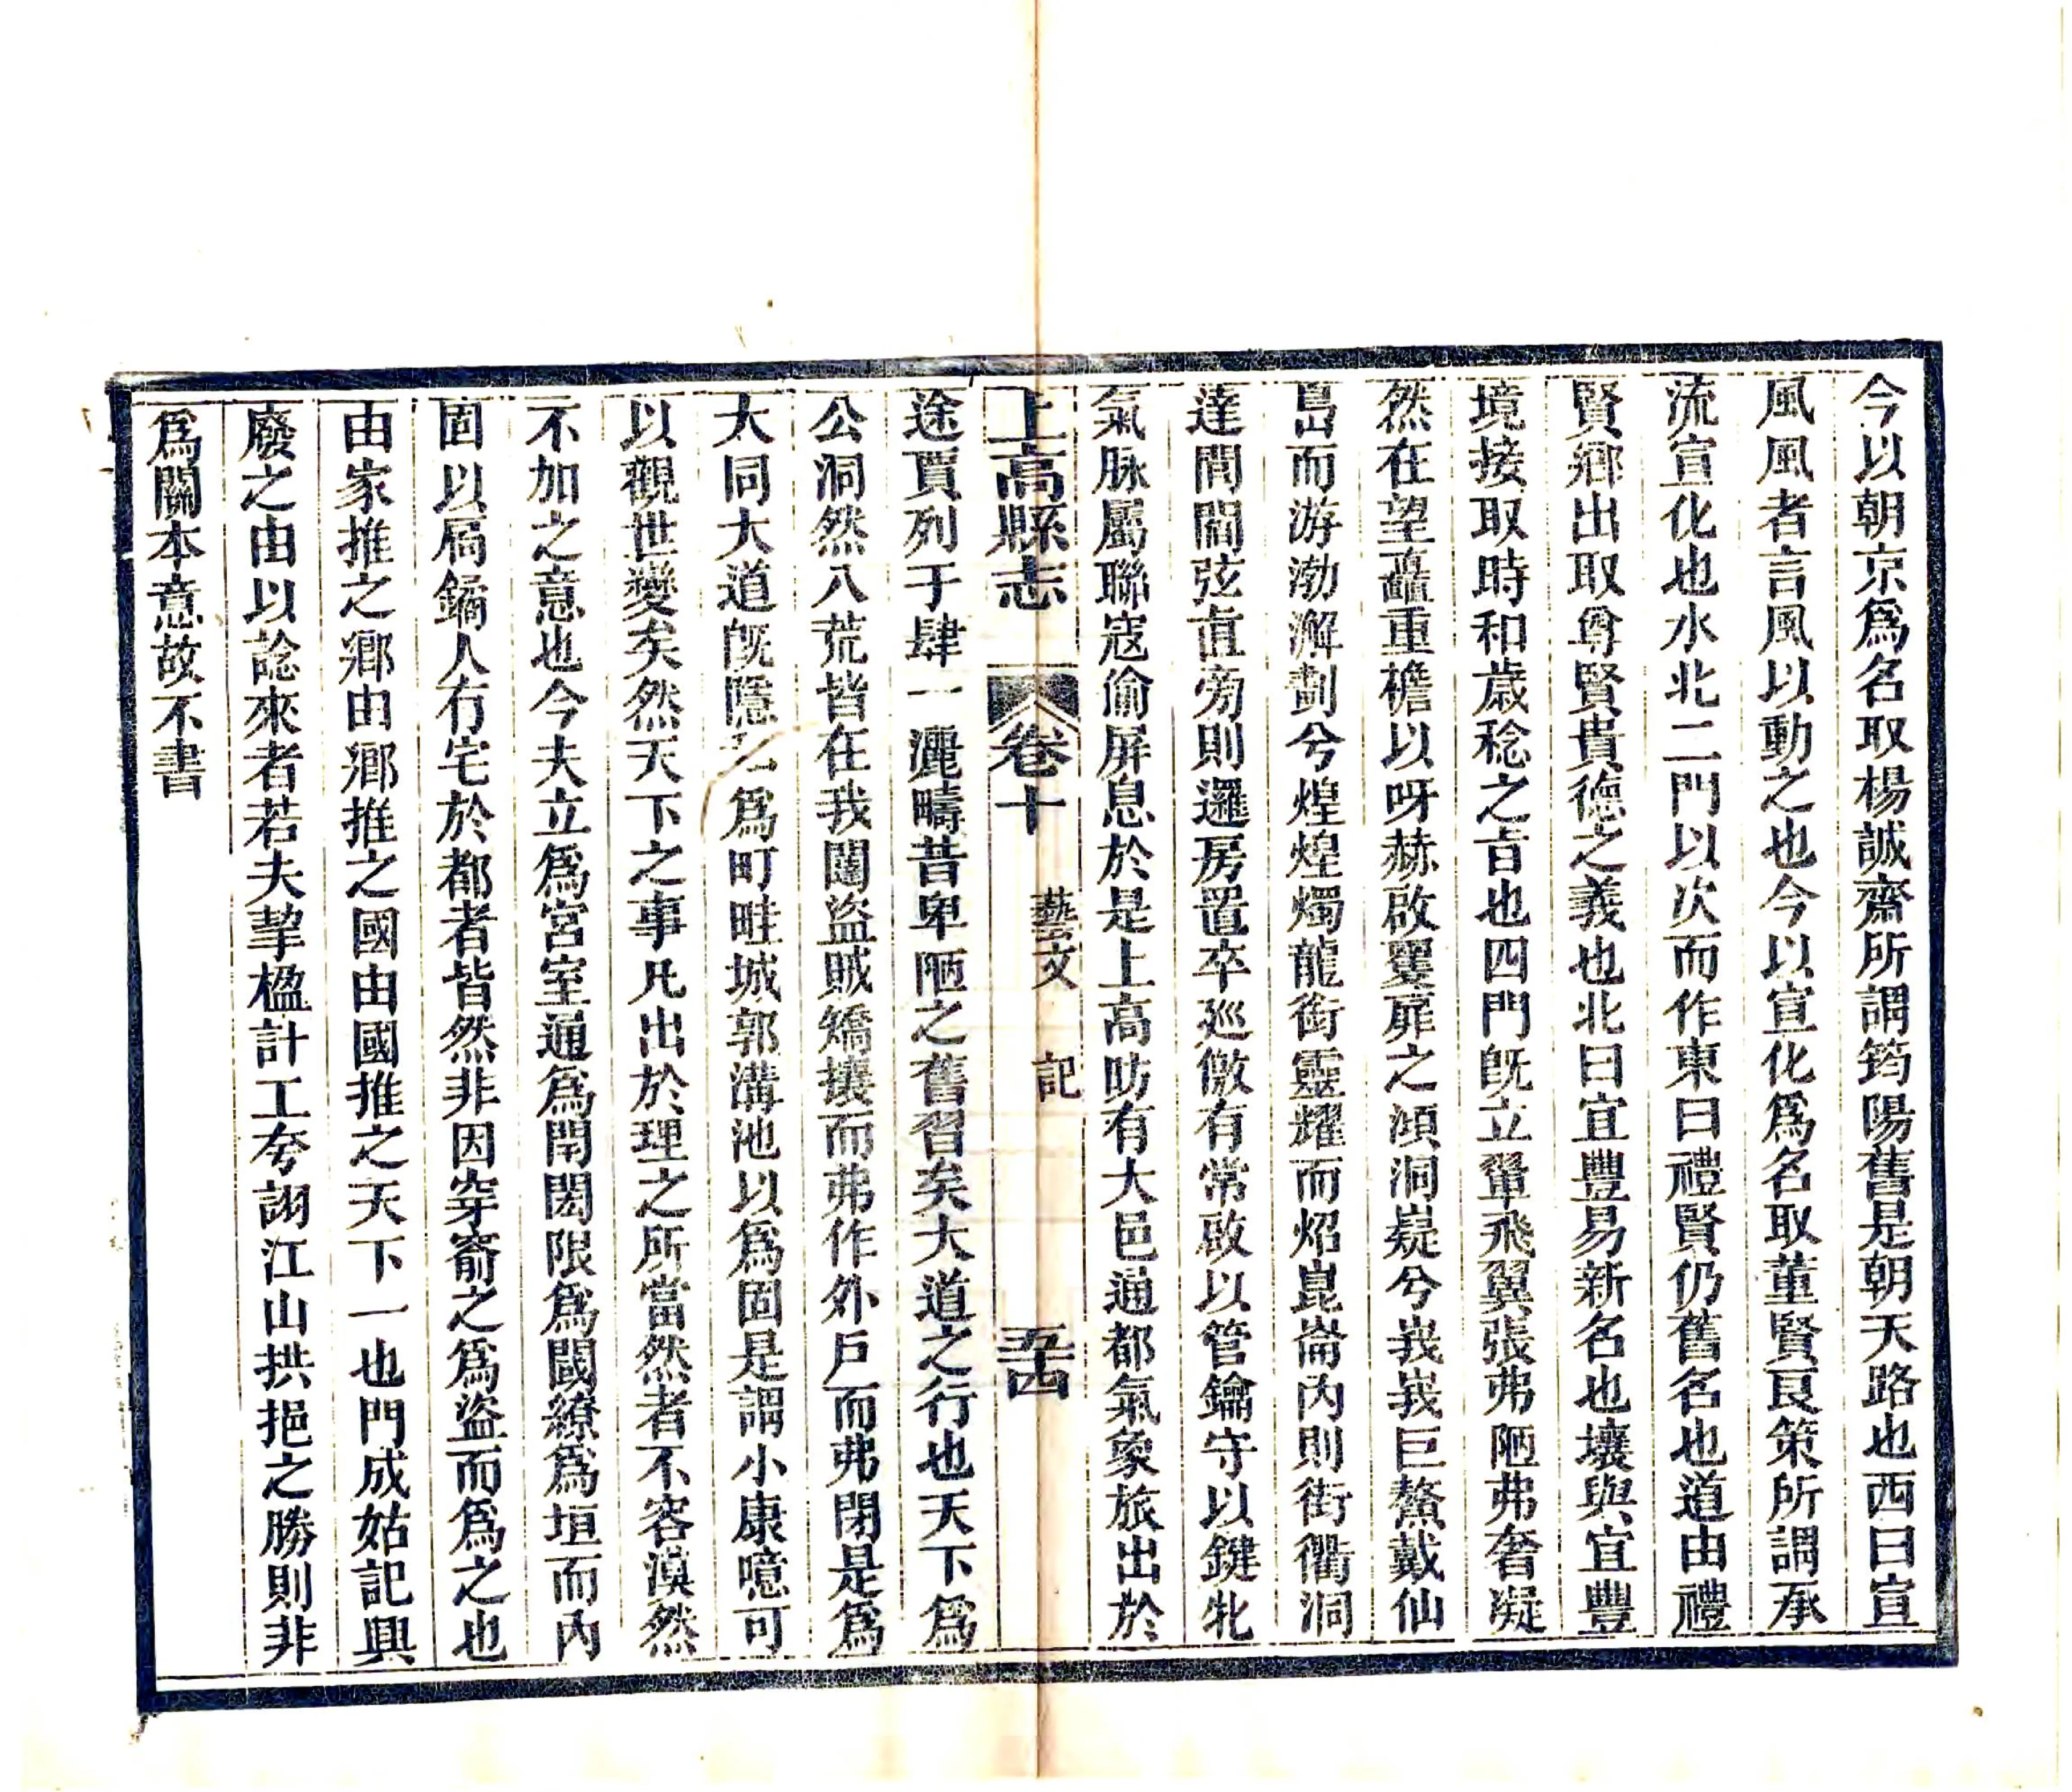 今以朝京爲名取楊誠齋所謂筠陽舊是朝天路也西曰宣
風風者言風以動之也今以宣化爲名取董賢良策所謂承
流宣化也水北二門以次而作東曰禮賢仍舊名也道由禮
賢鄉出取尊賢貴德之義也北曰宜豐易新名也壤與宜豐
境接取時和歲稔之旨也四門旣立翬飛翼張弗陋弗奢凝
然在望矗重檐以呀赫啟雙扉之澒洞嶷兮峩峩巨鰲戴仙
島而游渤澥劃兮煌煌燭龍銜靈耀而炤崑崙內則街衢洞
達閭閻弦直旁則邏房置卒廵儆有常啟以管鑰守以鍵牝
氣脉屬聯寇偷屏息於是上高昉有大邑通都氣象旅出於
上高縣志 卷十 藝文 記 五四
途賈列于肆一灑疇昔卑陋之舊習矣大道之行也天下爲
公洞然八荒皆在我闥盜賊矯攘而弗作外戶而弗閉是爲
大同大道旣隱 爲町畦城郭溝池以爲固是謂小康噫可
以觀世變矣然天下之事凡出於理之所當然者不容漠然
不加之意也今夫立爲宮室通爲閈閎限爲閾繚爲垣而內
固以扃鐍人有宅於都者皆然非因穿窬之爲盜而爲之也
由家推之鄉由鄉推之國由國推之天下一也門成姑記興
廢之由以諗來者若夫挈楹計工夸詡江山拱挹之勝則非
爲關本意故不書